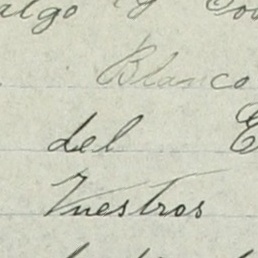 algo y
Blanco
del E
Vuestros